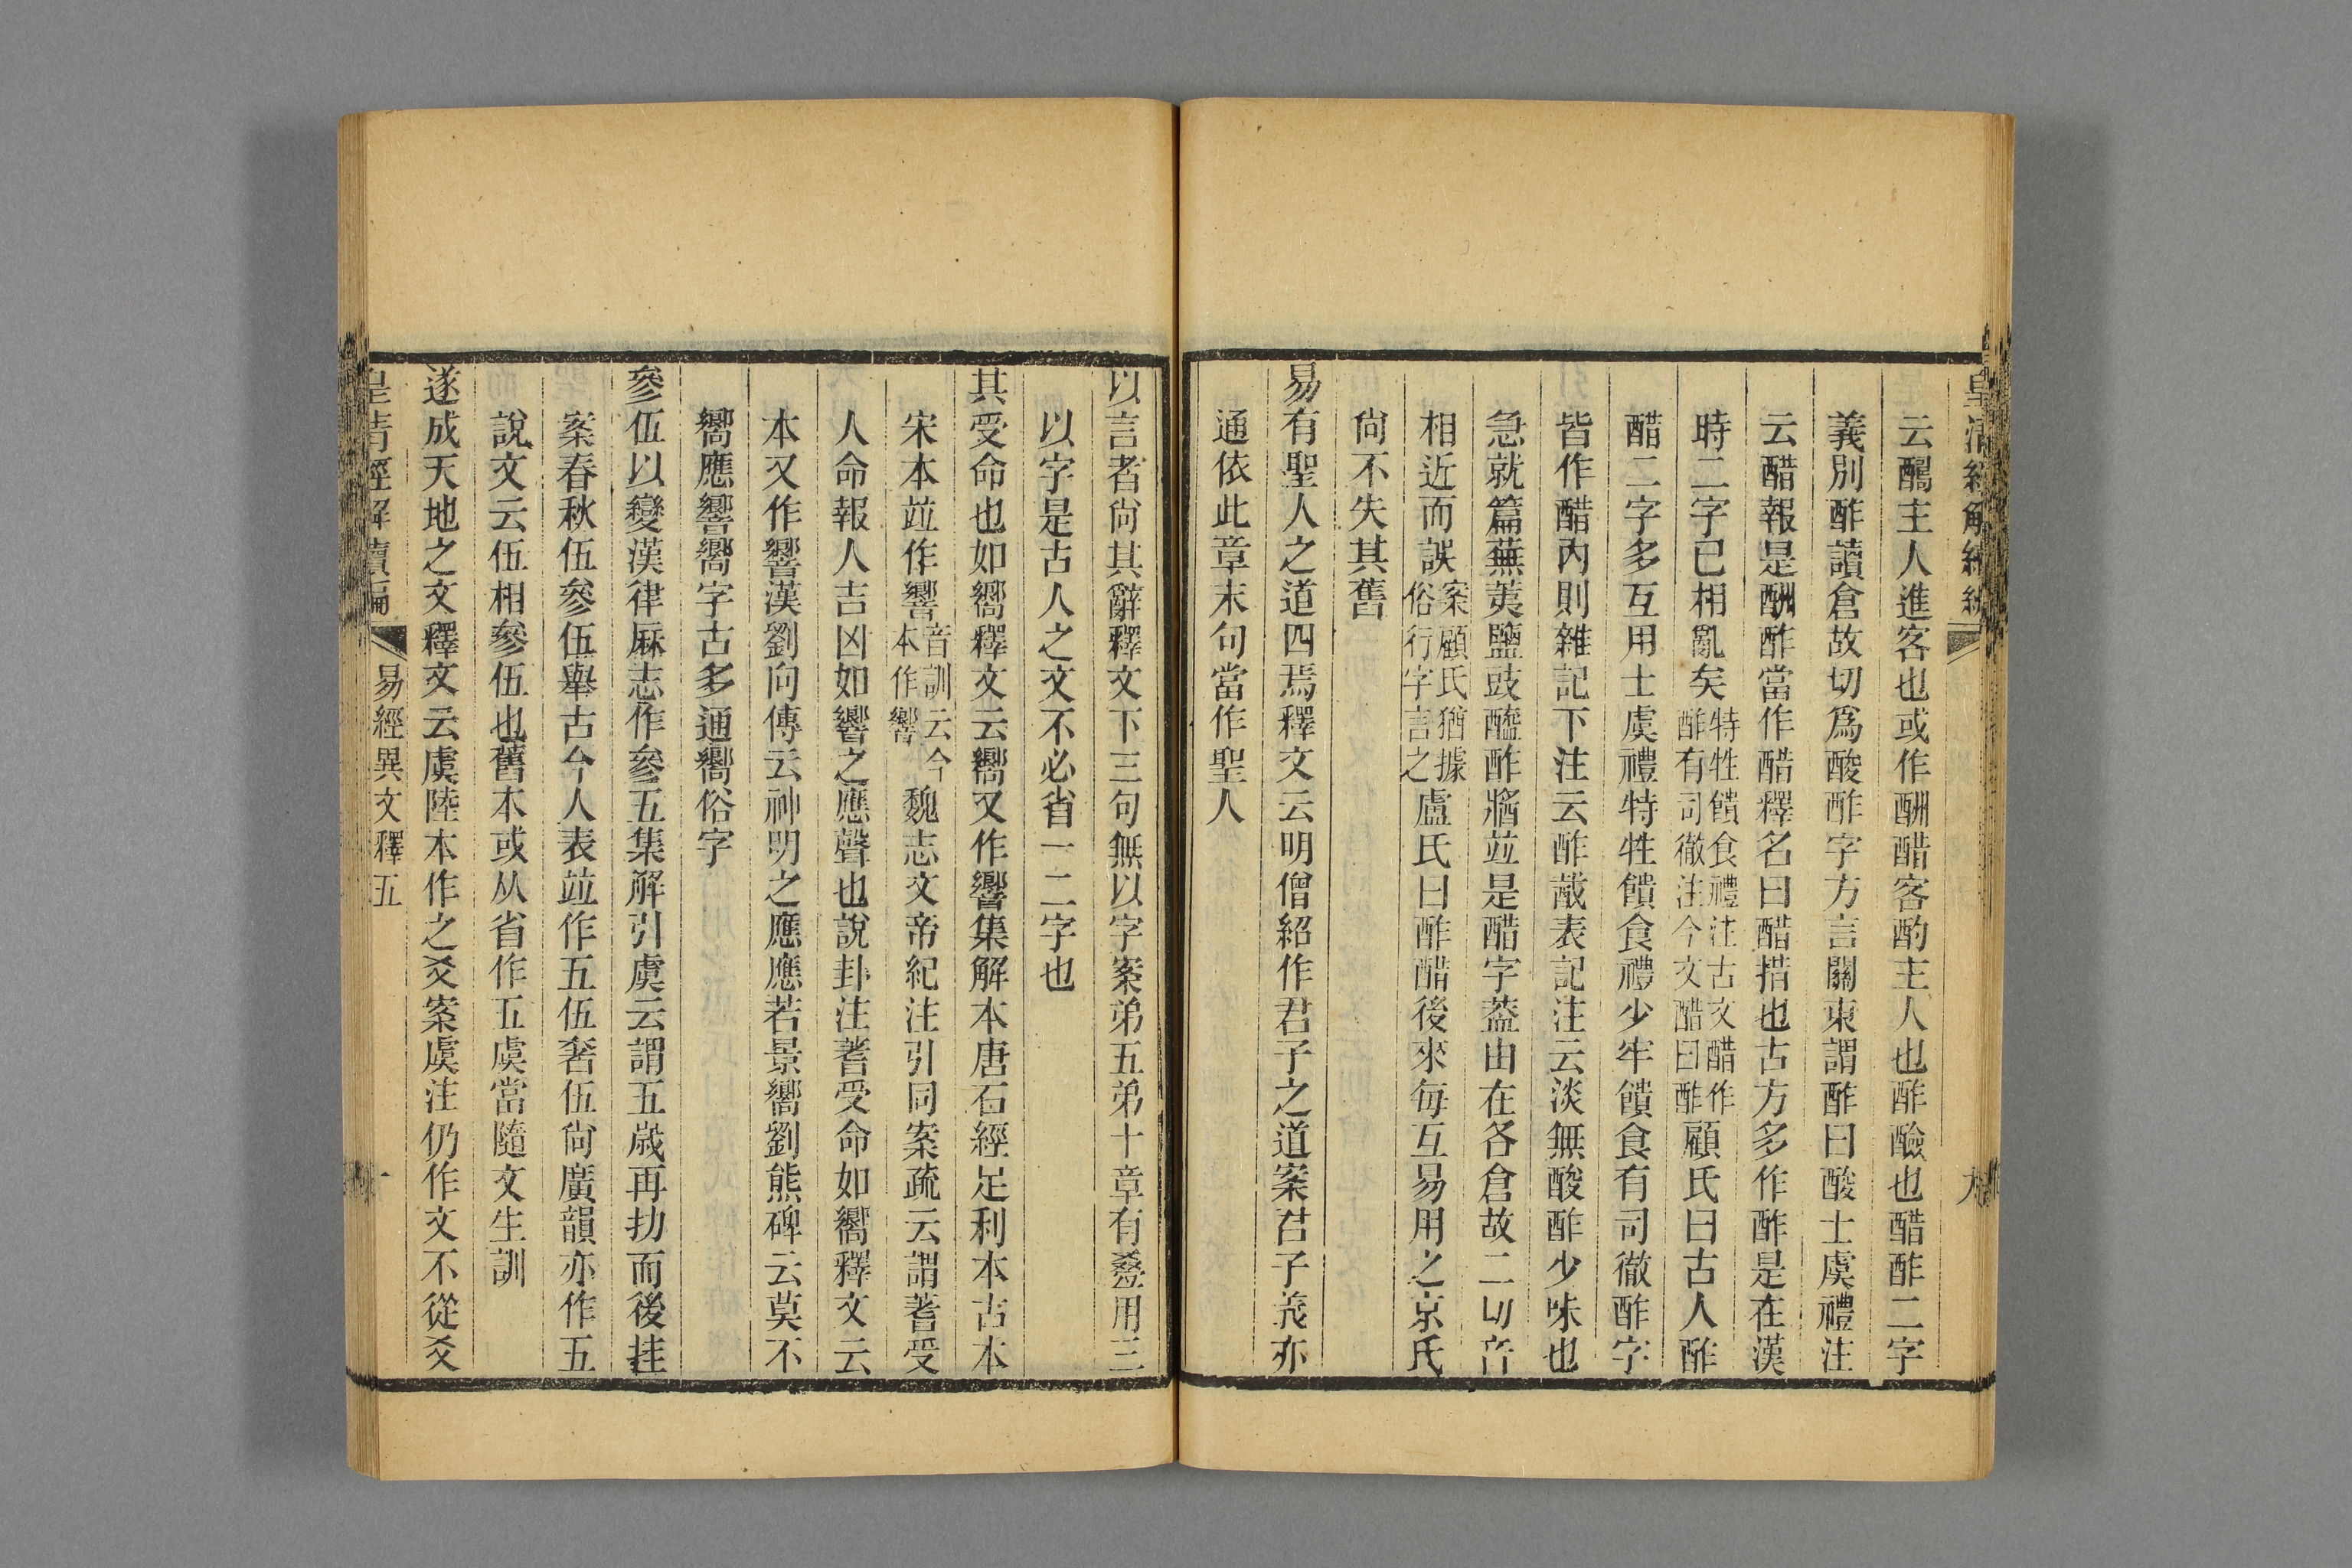 皇清經解續編
云醻主人進客也或作酬醋客酌主人也酢醶也醋酢二字
義別酢讀倉故切爲酸酢字方言關東謂酢曰酸士虞禮注
云醋報是酬酢當作醋釋名曰醋措也古方多作酢是在漢
時二字已相亂矣特牲饋食禮注古文醋作
酢有司徹注今文醋曰酢顧氏曰古人酢
醋二字多互用士虞禮特牲饋食禮少牢饋食有司徹酢字
皆作醋內則雜記下注云酢酨表記注云淡無酸酢少味也
急就篇蕪荑鹽豉醯酢將竝是醋字蓋由在各倉故二切音
相近而誤案顧氏猶據
俗行字言之盧氏曰酢醋後來每互易用之京氏
尙不失其舊
易有聖人之道四焉釋文云明僧紹作君子之道案君子義亦
通依此章末句當作聖人
以言者尙其辭釋文下三句無以字案弟五弟十章有叠用三
以字是古人之文不必省一二字也
其受命也如嚮釋文云嚮又作響集解本唐石經足利本古本
宋本竝作響音訓云今
本作響魏志文帝紀注引同案疏云謂蓍受
人命報人吉凶如響之應聲也說卦注蓍受命如嚮釋文云
本又作響漢劉向傳云神明之應應若景嚮劉熊碑云莫不
嚮應響嚮字古多通嚮俗字
參伍以變漢律厤志作參五集解引虞云謂五歲再扐而後挂
案春秋伍參伍舉古今人表竝作五伍奢伍尙廣韻亦作五
說文云伍相參伍也舊本或从省作五虞當隨文生訓
遂成天地之文釋文云虞陸本作之爻案虞注仍作文不從爻
皇清經解續編 易經異文釋五